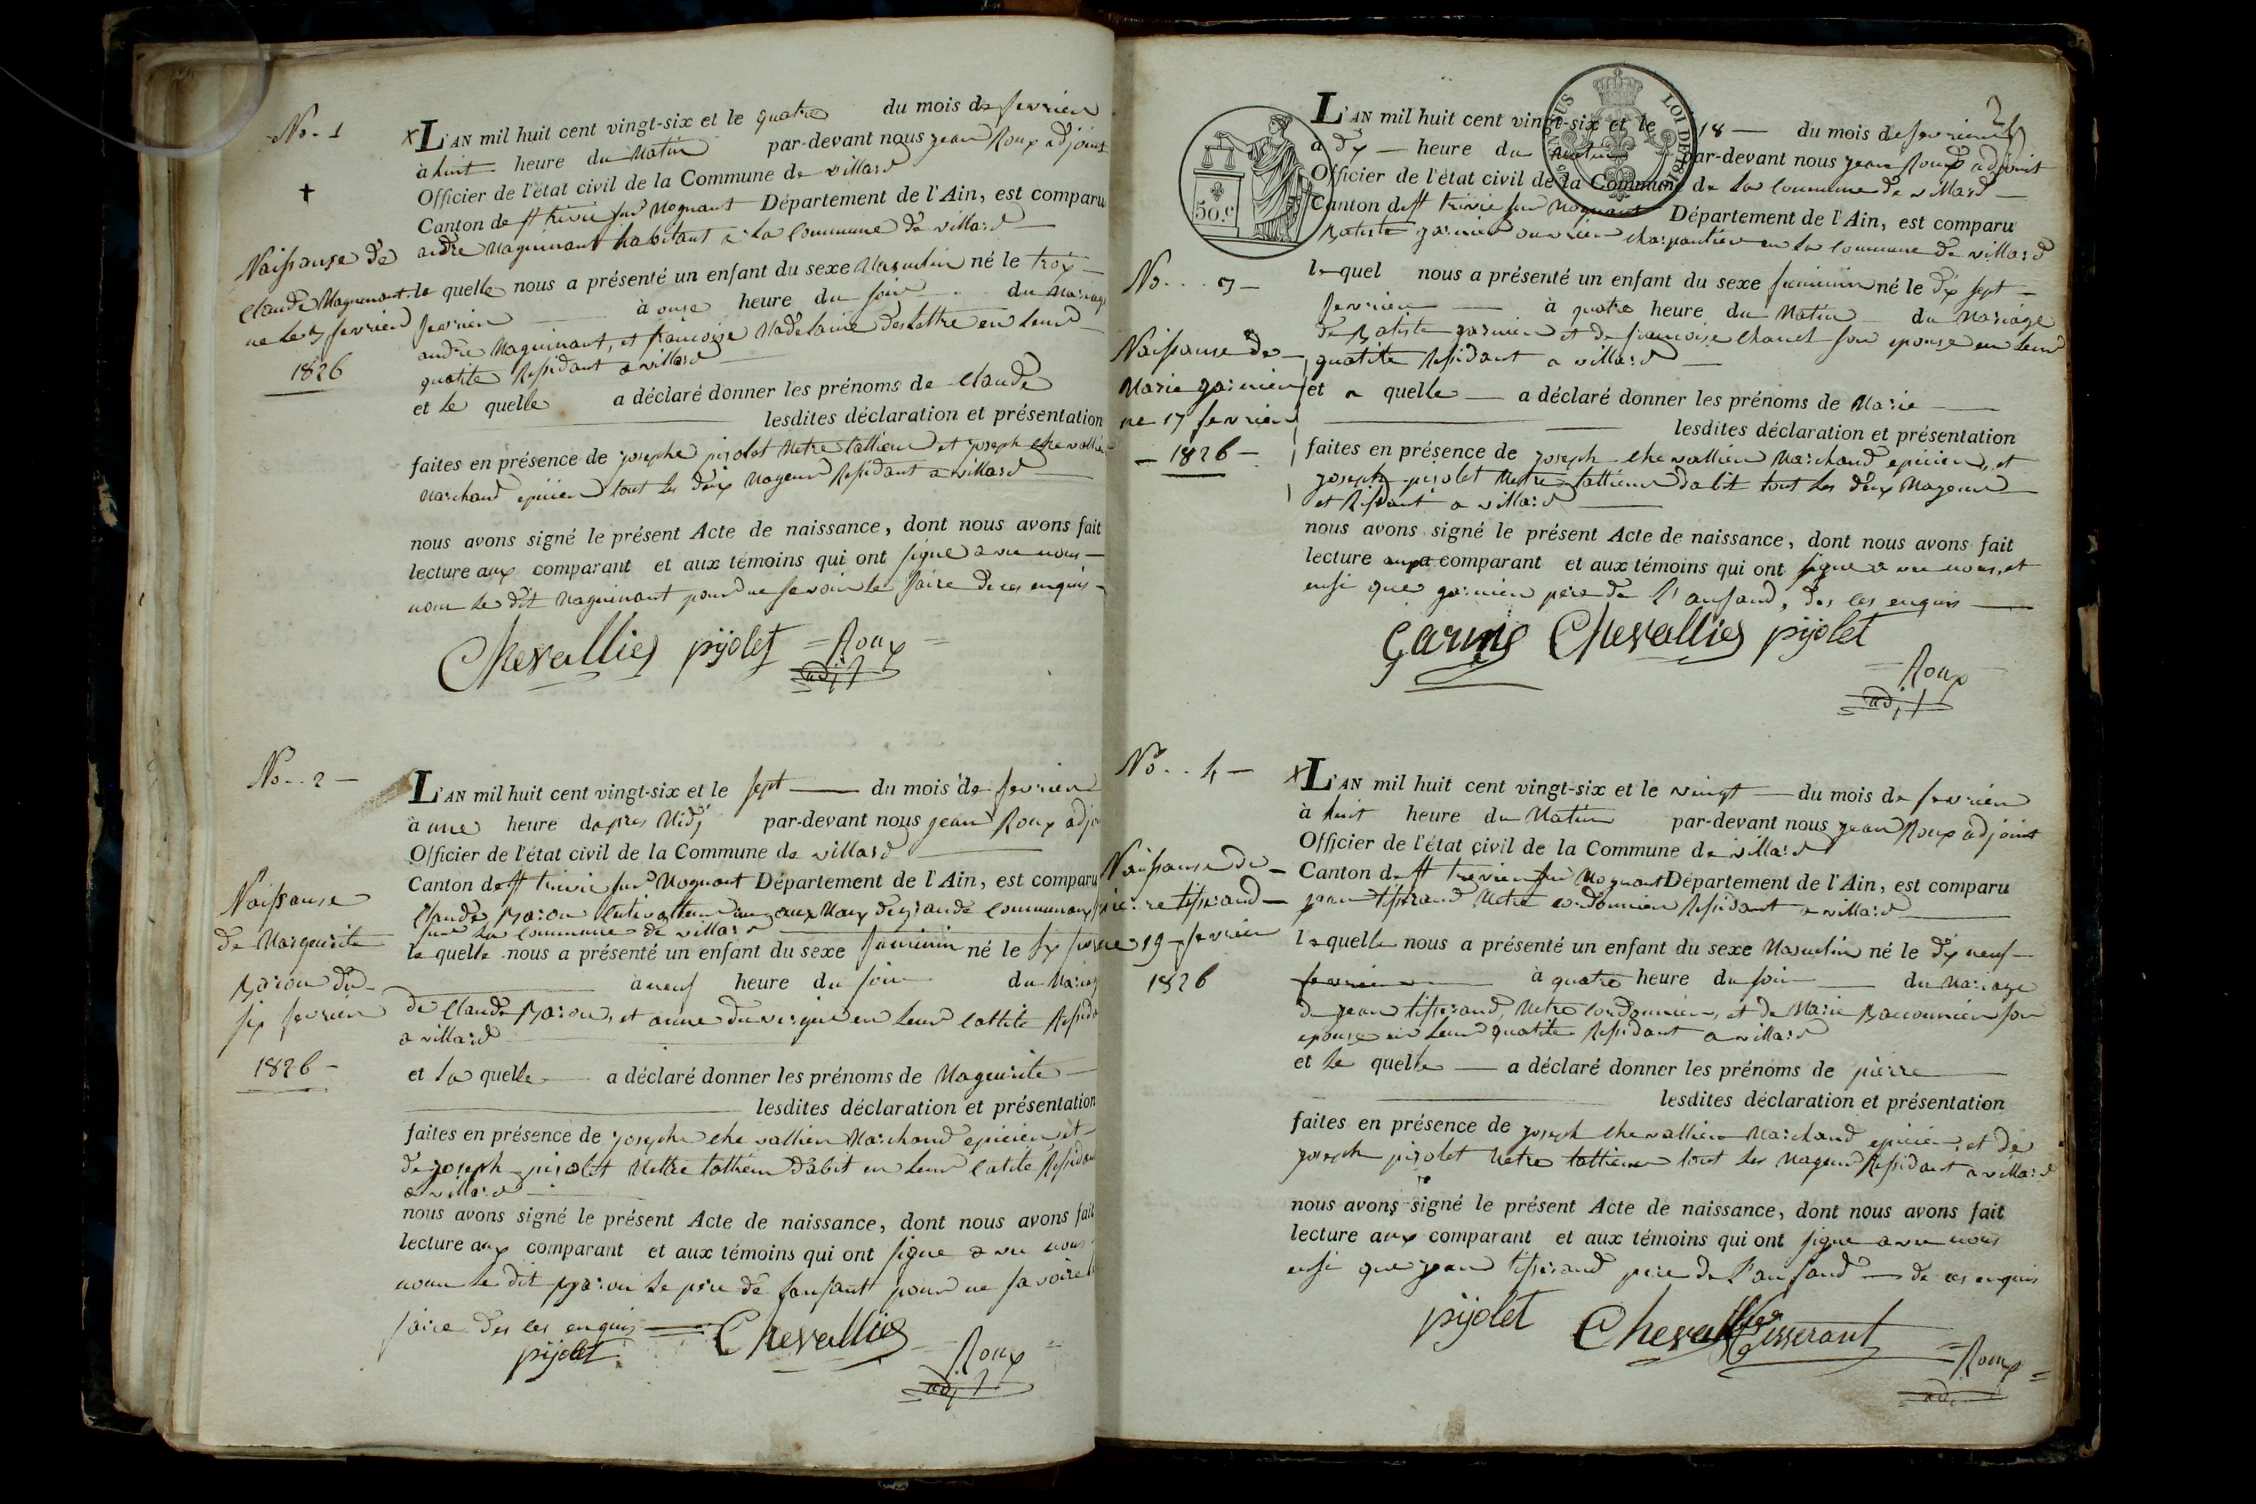 No. 1
†
Naissanse de
Claude Maguinant
ne le 3 fevrier
1826
L'AN mil huit cent vingt-six et le quatre du mois de fevrier
à huit heure du Matin par-devant nous jean Roux adjoint
Officier de l'état civil de la Commune de villard
Canton de st trivie sur Mognant Département de l'Ain, est comparu
andre Maguinant habitant a la Commune de villard
le quelle nous a présenté un enfant du sexe Masculin né le trois
fevrier à onse heure du soir du Mariage
andre Maguinant, et francoise Madelaine en leur
qualite Residant a villard
et le quelle a déclaré donner les prénoms de Claude
lesdites déclaration et présentation
faites en présence de josephe pijolet Metre tallieur et joseph chevallier
Marchand epicier tout les deux Mageur Residant a villard
nous avons signé le présent Acte de naissance, dont nous avons fait
lecture aux comparant et aux témoins qui ont signe avec nous
non le dit Maguinant pour ne savoir le faire de ces enquis
Chevallier pijolet Roux
adjt
No. 2
Naissanse
de Marguerite
Baron du
six fevrier
1826
L'AN mil huit cent vingt-six et le sept du mois de fevrier
à une heure dapres Midj par-devant nous jean Roux adjo
Officier de l'état civil de la Commune de villard
Canton de st trivie sur Mognant Département de l'Ain, est comparu
Claude Baron Cultivatteur
sur la Commune de villard
le quelle nous a présenté un enfant du sexe feminin né le six
à neuf heure du soir du Mariag
de Claude Baron, et anne duvergier en leur callite Resida
a villard
et la quelle a déclaré donner les prénoms de Maguerite
lesdites déclaration et présentation
faites en présence de josephe chevallier Marchand epicier et
de joseph pijolet Mettre tallieur dabit en leur calite Residan
a villard
nous avons signé le présent Acte de naissance, dont nous avons fait
lecture aux comparant et aux témoins qui ont signe avec nous
non le dit Baron le pere de lanfant pour ne savoire le
faire des ces enquis
pijolet Chevallier Roux
adjt
50.c
LOI DE 1816
No. 3
Naissanse de
Marie garnier
ne 17 fevrier
1826
L'AN mil huit cent vingt-six et le 18 du mois de fevrier
à dix heure du Matin par-devant nous jean Roux adjoint
Officier de l'état civil de la Commune de la Commune de villard
Canton de st trivie sur Mognant Département de l'Ain, est comparu
Batiste garnier ouvrier charpantier en la Commune de villard
le quel nous a présenté un enfant du sexe feminin né le dix sept
fevrier à quatre heure du Matin du Mariage
de Batiste garnier et de francoise Chanel son epouse en leur
qualite Residant a villard
et a quelle a déclaré donner les prénoms de Marie
lesdites déclaration et présentation
faites en présence de joseph chevallier Marchand epicier, et
joseph pijolet Metre tallieur dabit tout les deux Mageur
et Residant a villard
nous avons signé le présent Acte de naissance, dont nous avons fait
lecture aux comparant et aux témoins qui ont signe avec nous, et
ensi que garnier pere de l'anfand, des ces enquis
Garnie Chevallier pijolet
Roux
adjt
No. 4
Naissanse de
pierre tisserand
ne 19 fevrier
1826
L'AN mil huit cent vingt-six et le vingt du mois de fevrier
à huit heure du Matin par-devant nous jean Roux adjoint
Officier de l'état civil de la Commune de villard
Canton de st trivier sur Mognant Département de l'Ain, est comparu
jean tisserand Metre cordonnier Residant a villard
le quelle nous a présenté un enfant du sexe Masculin né le dix neuf
fevrier à quatre heure du soir du Mariage
de jean tisserand, Metre Cordonnier, et de Marie son
epouse en leur qualite Residant a villard
et le quelle a déclaré donner les prénoms de pierre
lesdites déclaration et présentation
faites en présence de joseph chevallier Marchand epicier et de
joseph pijolet Metre tallieur tout les Mageur Residant a villard
nous avons signé le présent Acte de naissance, dont nous avons fait
lecture aux comparant et aux témoins qui ont signe avec nous
ensi que jean tisserand pere de l'anfand de ces enquis
pijolet Chevallier Tisserant Roux
adjt